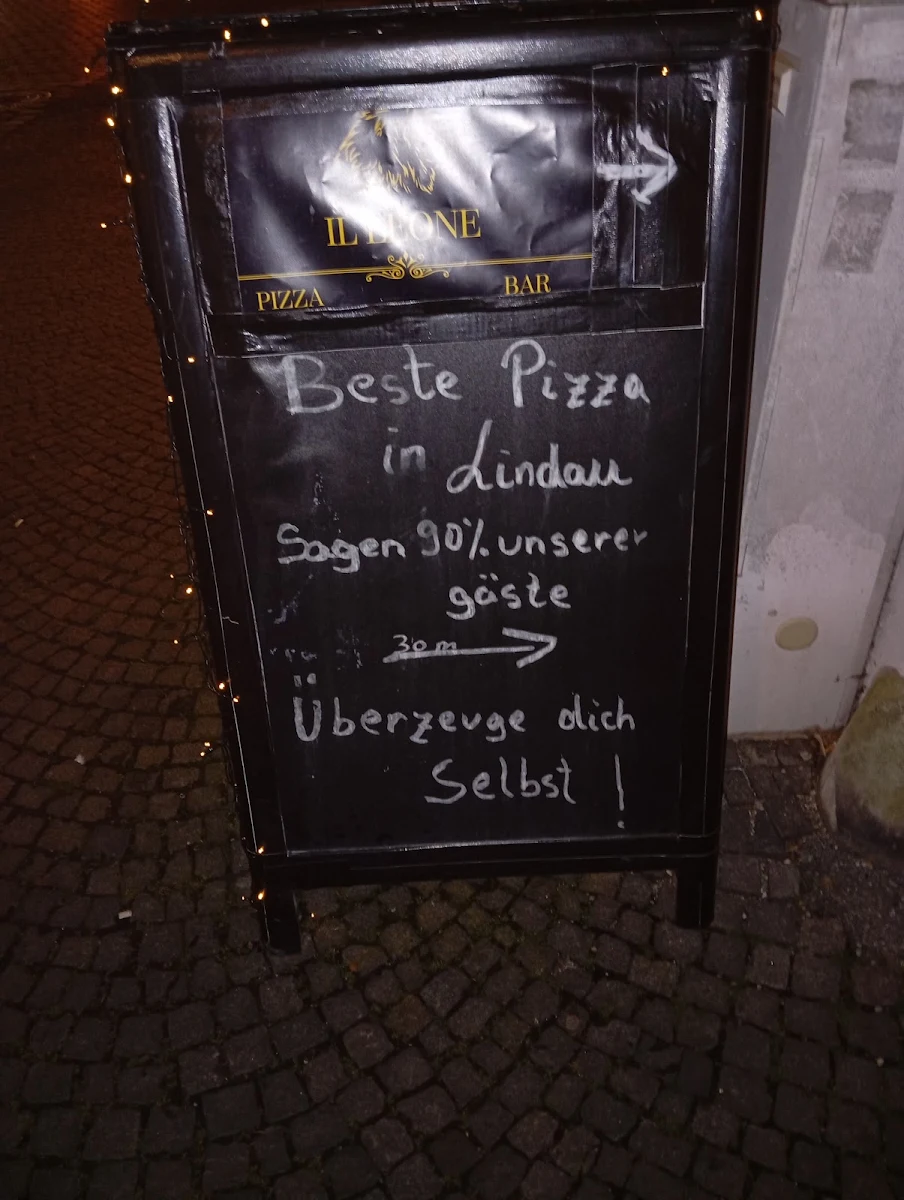 IL LEONE
PIZZA BAR
Beste Pizza
in Lindau
Sagen 90% unserer
gäste
30m
Überzeuge dich
Selbst !